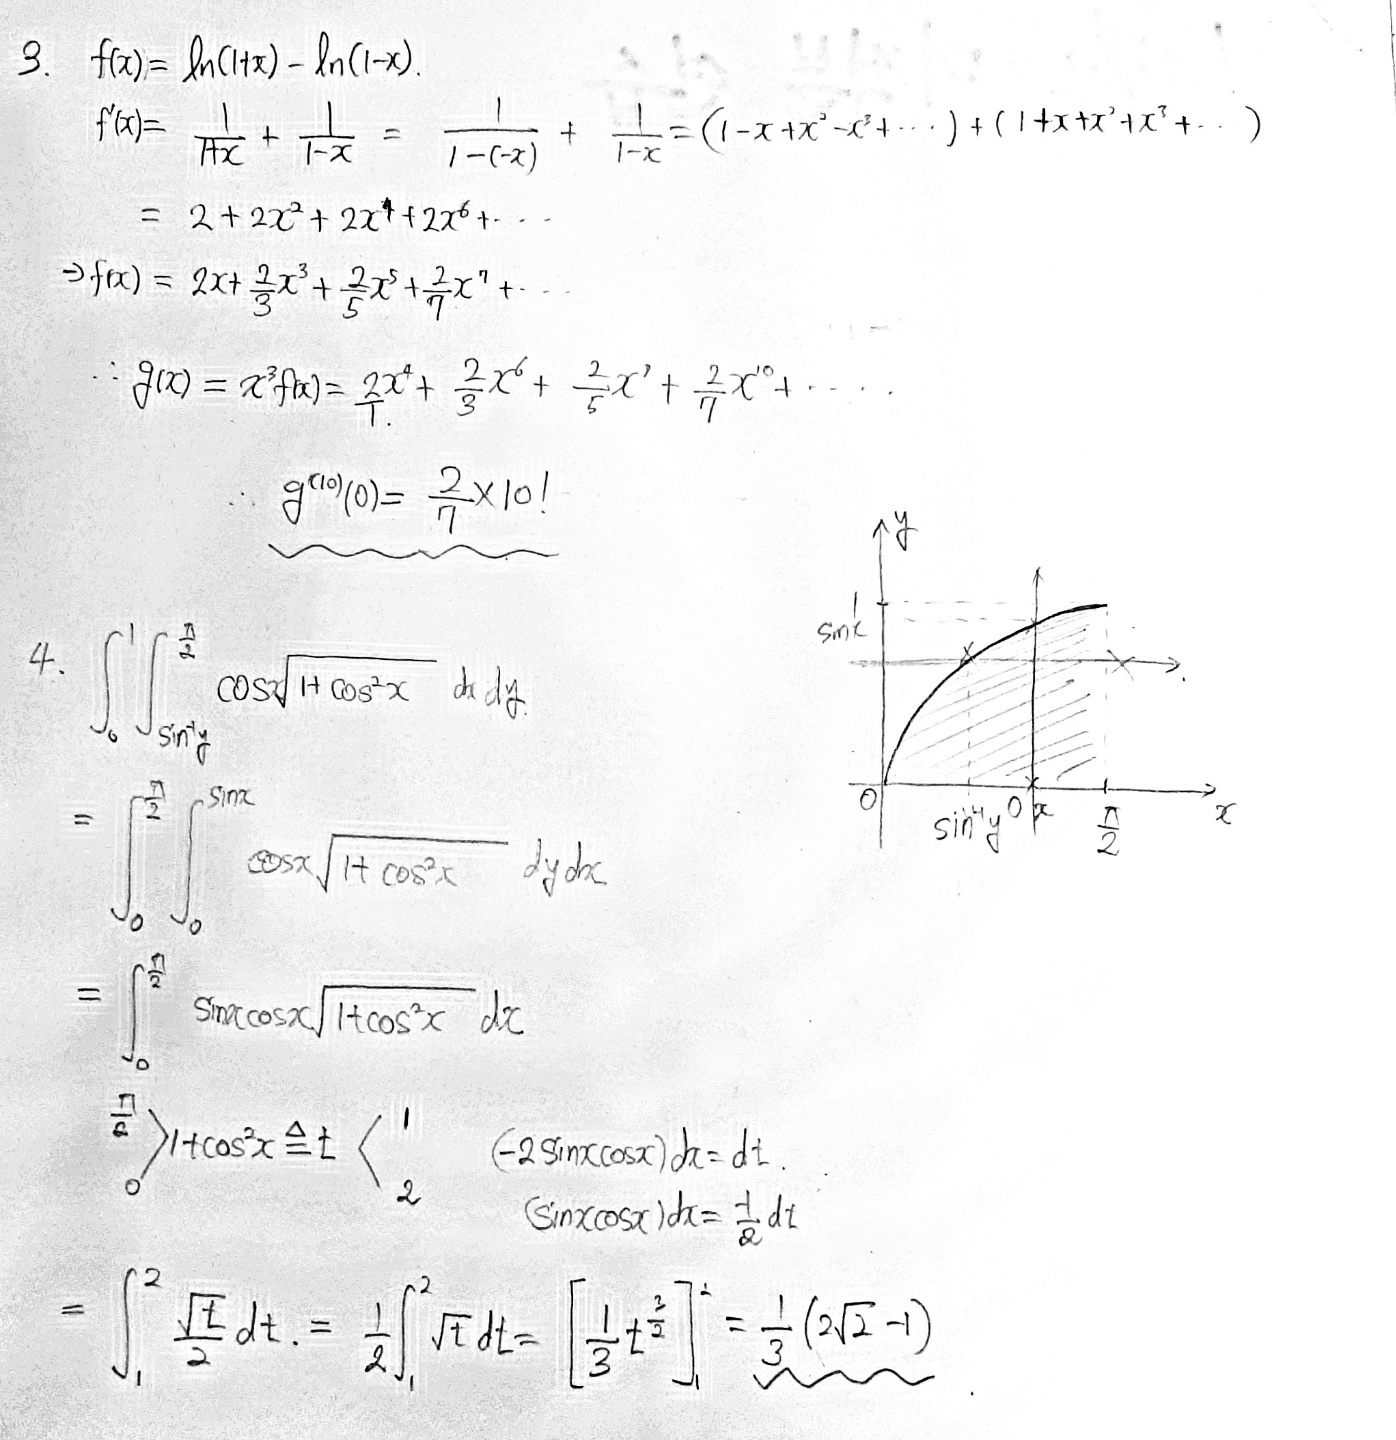 3. f(x) = ln(1+x) - ln(1-x).
f'(x) = 1/(1+x) + 1/(1-x) = 1/(1-(-x)) + 1/(1-x) = (1-x+x²-x³+····) + (1+x+x²+x³+···)
= 2+2x²+2x⁴+2x⁶+····
⇒ f(x) = 2x+ 2/3 x³ + 2/5 x⁵ + 2/7 x⁷ +····
∴ g(x) = x³f(x) = 2/1 x⁴ + 2/3 x⁶ + 2/5 x⁸ + 2/7 x¹⁰ + ·····
∴ g⁽¹⁰⁾(0) = 2/7 × 10!
4. ∫₀¹ ∫_{sin⁻¹y}^{π/2} cosx√(1+cos²x) dx dy.
= ∫₀^{π/2} ∫₀^{sinx} cosx√(1+cos²x) dy dx
= ∫₀^{π/2} sinx cosx√(1+cos²x) dx
π/2
0 > 1+cos²x ≜ t < 1
2
(-2sinxcosx)dx = dt.
(sinxcosx)dx = -1/2 dt
= ∫₁² √t/2 dt. = 1/2 ∫₁² √t dt = [1/3 t^{3/2}]₁² = 1/3 (2√2 -1)
y
1
sinx
0
sin⁻¹y
0
x
π/2
x